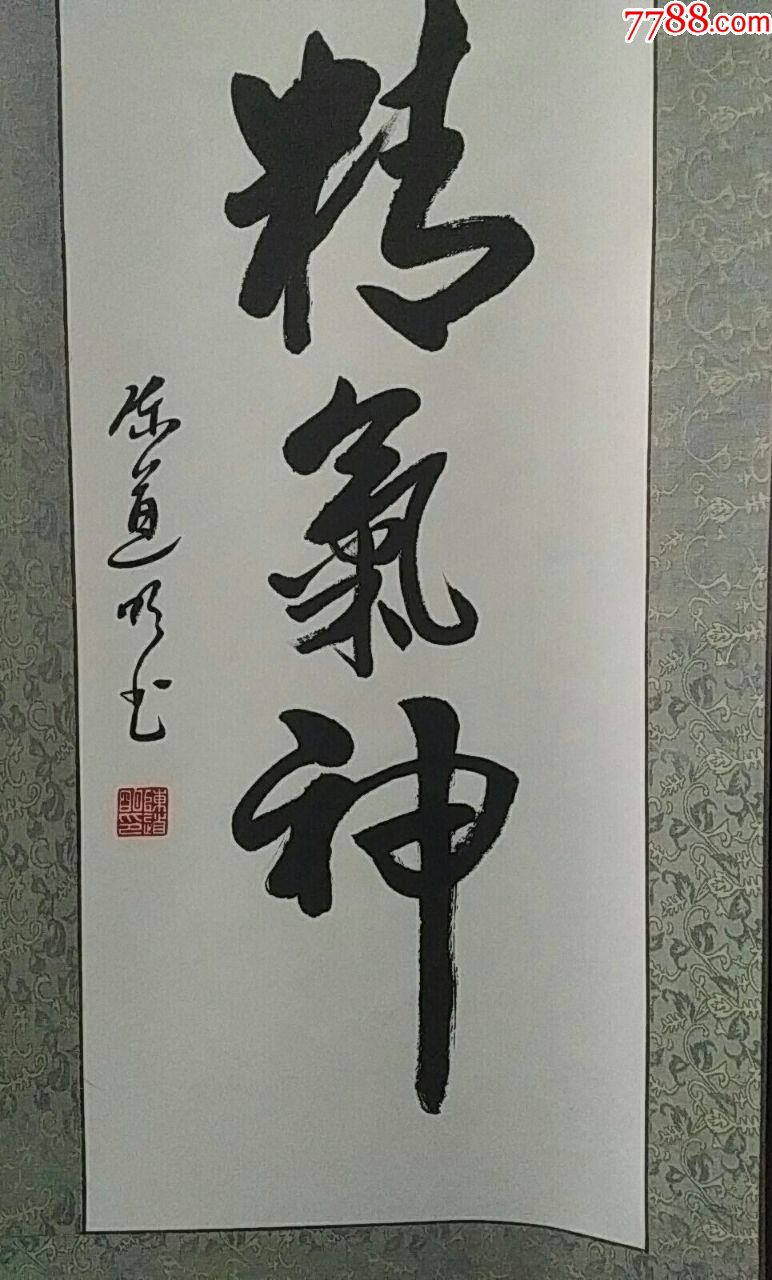 7788.com
精氣神
陈道明书
陳道明印